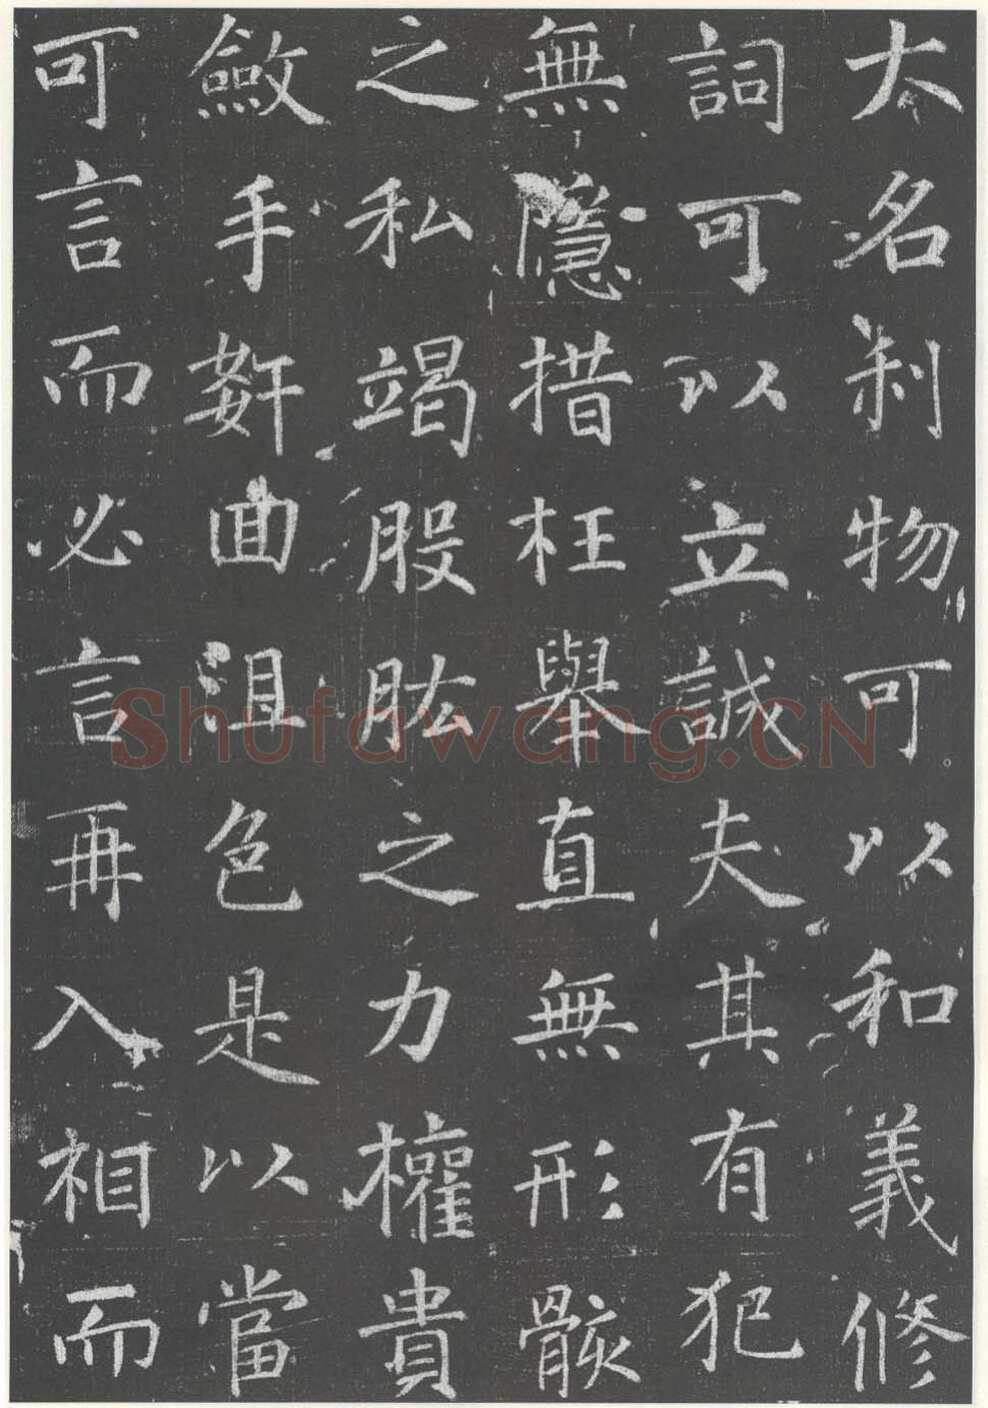 太名剎物可以和義修
詞可以立誠夫其有犯
無隱措枉舉直無形骸
之私竭股肱之力權貴
斂手姧回沮色是以當
可言而必言再入相而
Shufawang.CN